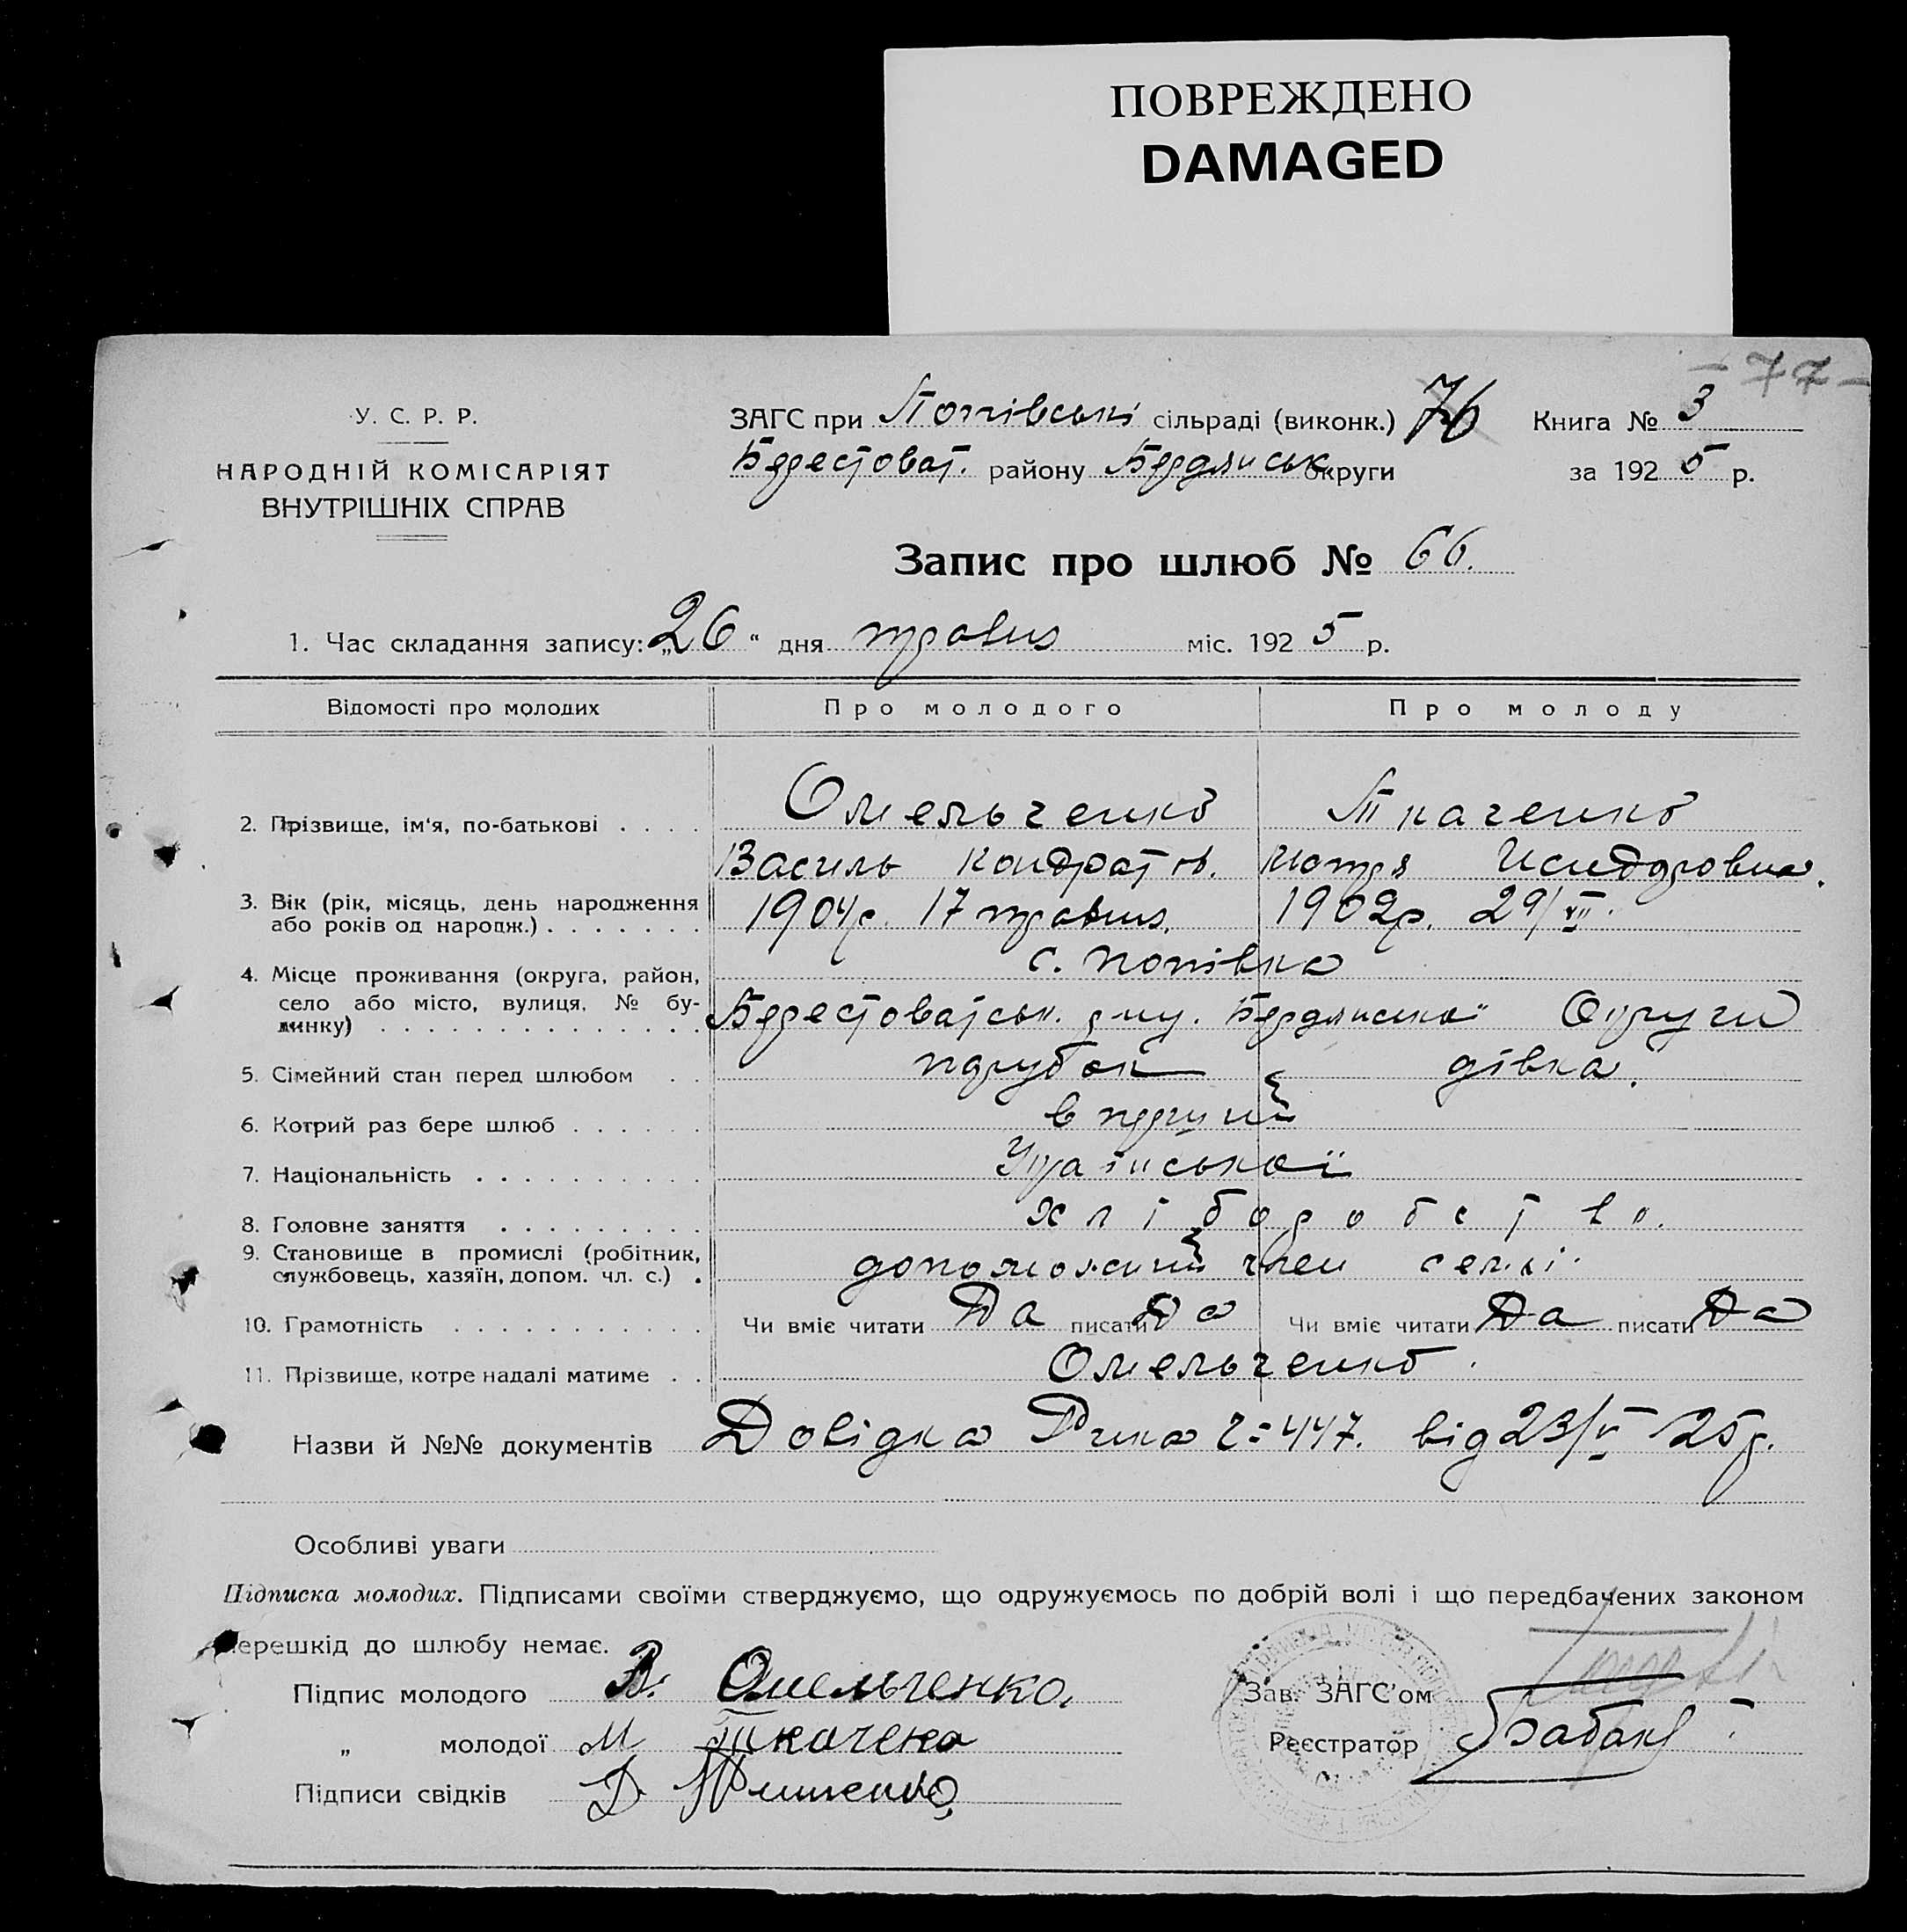 ПОВРЕЖДЕНО
DAMAGED
- 77 -
У. С. Р. Р.
НАРОДНІЙ КОМІСАРІЯТ
ВНУТРІШНІХ СПРАВ
ЗАГС при Попівські сільраді (виконк.) 76 Книга № 3
Берестоват. району Бердянськ. округи за 1925 р.
Запис про шлюб № 66.
1. Час складання запису: „26“ дня травня міс. 1925 р.
Відомості про молодих Про молодого Про молоду
2. Прізвище, ім'я, по-батькові . . . . Омельченко Ткаченко
Василь Кондратов. Мотря Исидоровна.
3. Вік (рік, місяць, день народження 1904р. 17 травня. 1902р. 29/VII.
або років од народж.) . . . . . . .
с. Попівка
4. Місце проживання (округа, район,
село або місто, вулиця, № бу- Берестоватськ. р-ну. Бердянської Округи
динку) . . . . . . . . . . . . . . .
5. Сімейний стан перед шлюбом . . парубок дівка.
6. Котрий раз бере шлюб . . . . . . в перший
7. Національність . . . . . . . . . . Української
8. Головне заняття . . . . . . . . . хліборобство.
9. Становище в промислі (робітник, допоможний член семьі.
службовець, хазяїн, допом. чл. с.) .
10. Грамотність . . . . . . . . . . . Чи вміє читати Да писати Да Чи вміє читати Да писати Да
11. Прізвище, котре надалі матиме . . Омельченко.
Назви й №№ документів Довідка Р-ика ч=447. від 23/V 25р.
Особливі уваги
Підписка молодих. Підписами своїми стверджуємо, що одружуємось по добрій волі і що передбачених законом
перешкід до шлюбу немає.
Підпис молодого В. Омельченко. Зав. ЗАГС'ом
„ молодої М Ткаченко Реєстратор
Підписи свідків Д.